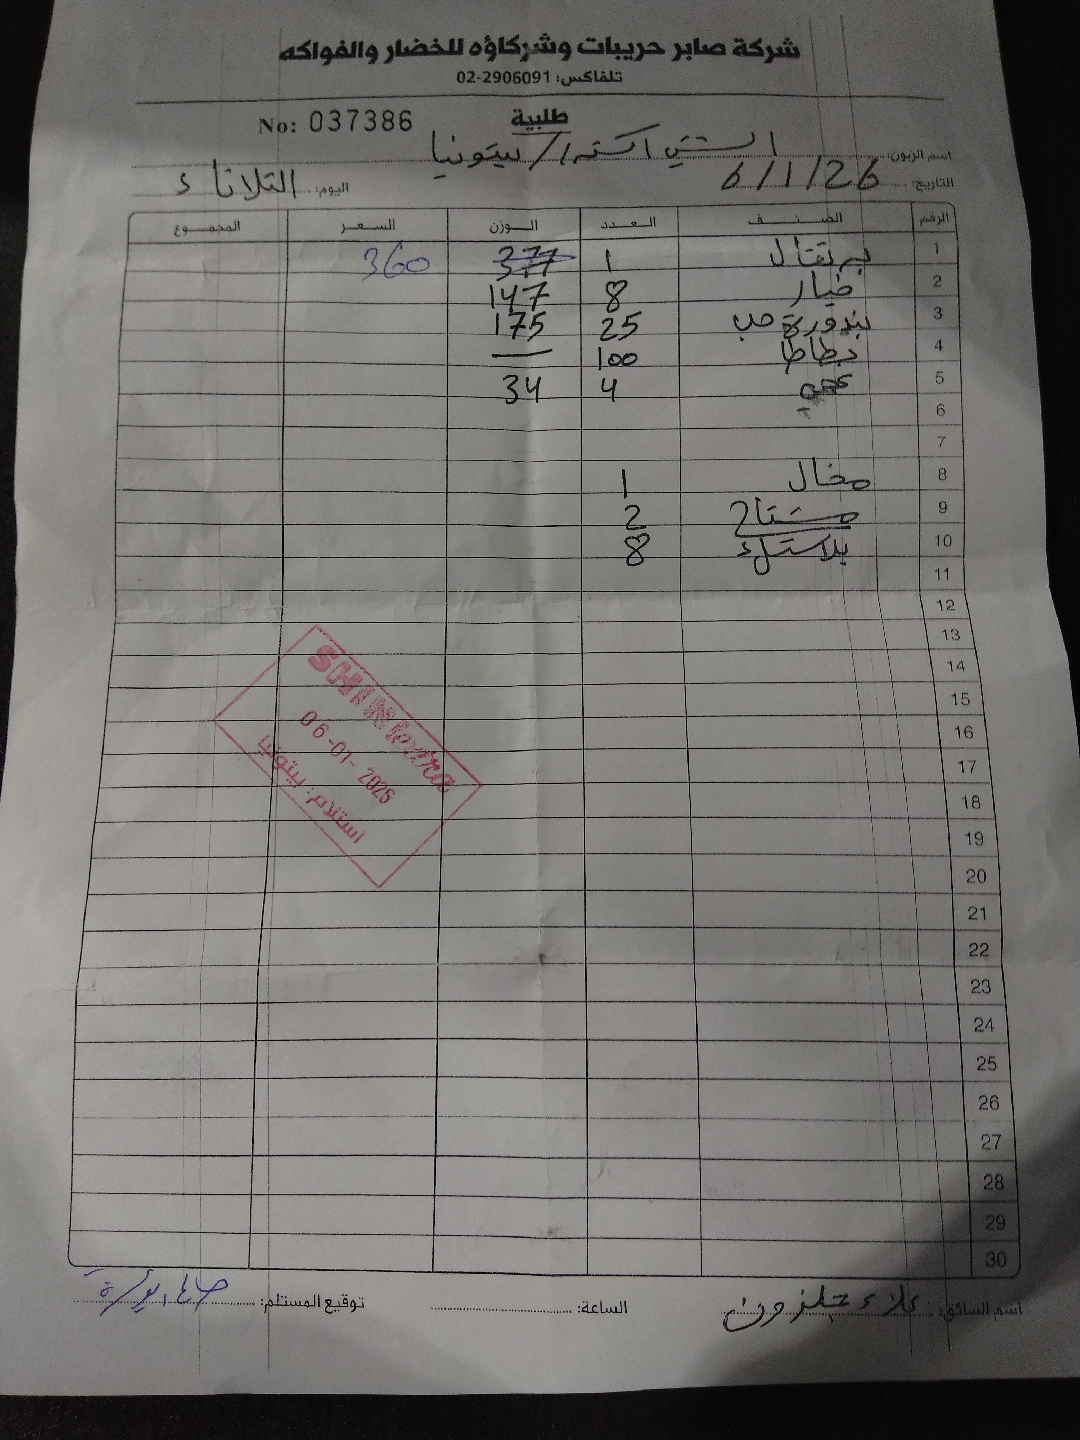 شركة صابر حريبات وشركاؤه للخضار والفواكه
تلفاكس: 02-2906091
طلبية
No: 037386
اسم الزبون: الشني اكسترا / بيتونيا
التاريخ: 6/1/26 اليوم: الثلاثاء
الرقم الصنف العدد الوزن السعر المجموع
1 برتقال 1 377 360
2 خيار 8 147
3 بندورة حب 25 175
4 بطاطا 100 —
5 4 34
6
7
8 مخال 1
9 مشتاح 2
10 بلاستك 8
11
12
13
14
15
16
17
18
19
20
21
22
23
24
25
26
27
28
29
30
SHINI extra
06-01-2026
استلام: بيتونيا
اسم السائق: علاء جلزون الساعة: توقيع المستلم: